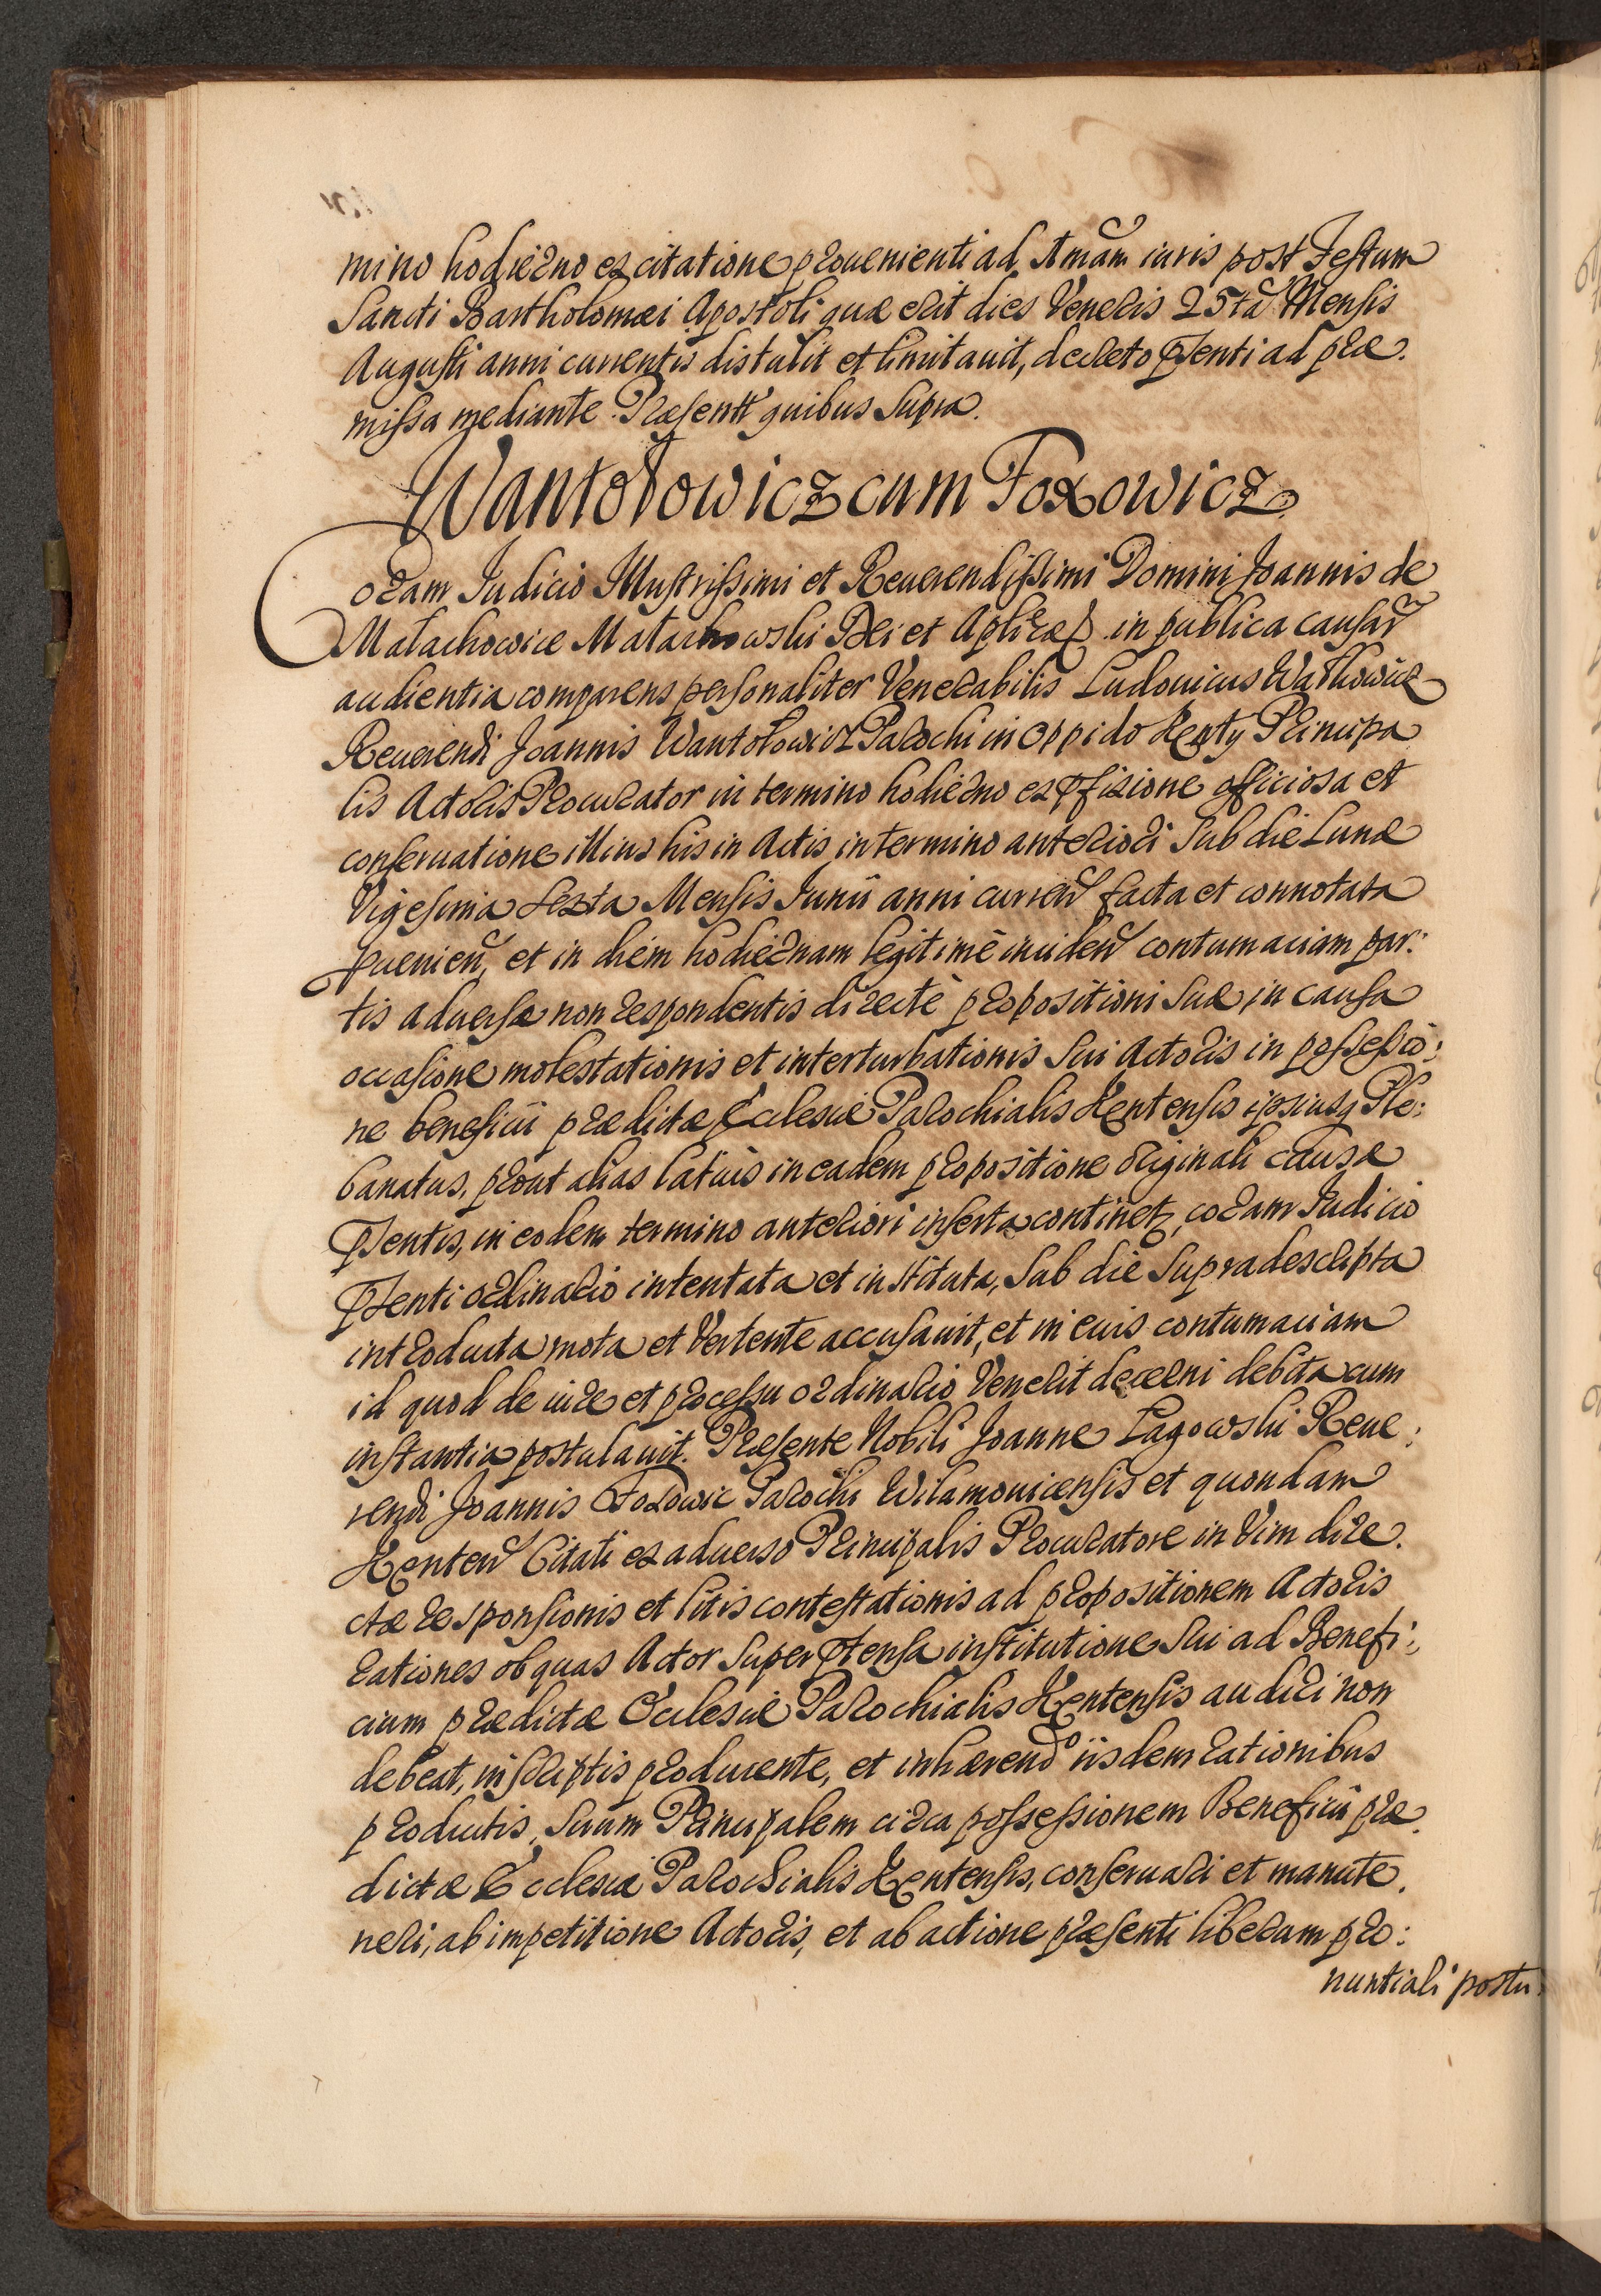 mino hodierno ex citatione prouenienti ad Amam iuris post Festum
Sancti Bartholomæi Apostoli quæ erit dies Veneris 25ta Mensis
Augusti anni currentis distulit et limitauit, decreto pñsenti ad præ.
missa mediante. Præsentt quibus supra.
Wantołowicz cum Foxowicz
Coram Judicio Illustrissimi et Reuerendissimi Domini Joannis de
Małachowice Małachowski Dei et Aplicæ in publica causarũ
audientia comparens personaliter Venerabilis Ludouicus Wathowicz
Reuerendi Joannis Wantołowicz Parochi in Oppido Kenty Principa
lis Actoris Procurator in termino hodierno ex pfixione officiosa et
conseruatione illius his in Actis in termino anteriori sub die Lunæ
Vigesima sexta Mensis Junii anni curreñ facta et connotata
puenieñ, et in diem hodiernam legitimè incideñ contumaciam par:
tis aduersæ non respondentis directè propositioni suæ, in causa
occasione molestationis et inturbationis sui Actoris in possessio:
ne beneficii prædictæ Ecclesiæ Parochialis Kentensis ipsiusq Ple:
banatus, prout alias latius in eadem propositione originali causæ
pñsentis, in eodem termino anteriori inserta continet, coram Judicio
pñsenti ordinario intentata et instituta, sub die supradescripta
introducta mota et Vertente accusauit, et in euis contumaciam
id quod de iure et processu ordinario Venerit decerni debita cum
instantia postulauit. Præsente Nobili Joanne Łagowski Reue:
rendi Joannis Foxowic Parochi Wilamouicensis et quondam
Kenteñ Citati ex aduerso Principalis Procuratore in Vim dire.
ctæ responsionis et litis contestationis ad propositionem Actoris
rationes ob quas Actor super ptensa institutione sui ad Benefi:
cium prædictæ Ecclesiæ Parochialis Kentensis audiri non
debeat, in scriptis producente, et inhærendo iisdem rationibus
productis, suum Principalem circa possessionem Beneficii præ.
dictæ Ecclesiæ Parochialis Kentensis, conseruari et manute.
neri, ab impetitione Actoris, et ab actione præsenti liberam pro:
nuntiari postu: